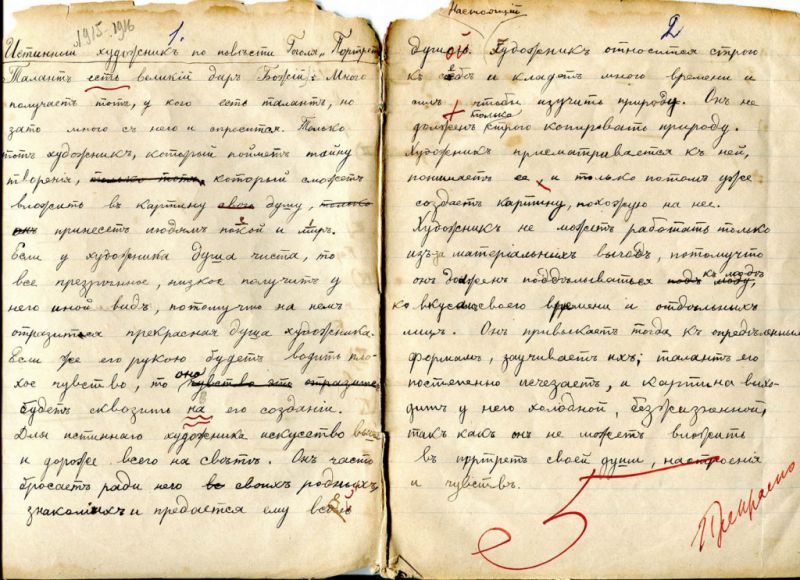 1915-1916
1.
Истинный художникъ по повѣсти Гоголя „Портретъ
Талантъ есть великій даръ Божій; Много
получаетъ тотъ, у кого есть талантъ, но
зато много съ него и спросится. Только
тотъ художникъ, который пойметъ тайну
творенія, только тотъ, который сможетъ
вложить въ картину свою душу, только
онъ принесетъ людямъ покой и миръ.
Если у художника душа чиста, то
все презрѣнное, низкое получитъ у
него иной видъ, потому что на немъ
отразится прекрасная душа художника.
Если же его рукою будетъ водить пло-
хое чувство, то оно чувство это отразится
будетъ сквозить на его созданіи.
Для истиннаго художника искусство выше
и дороже всего на свѣтѣ. Онъ часто
бросаетъ ради него всѣ своихъ родныхъ,
знакомыхъ и предается ему всей
2
Настоящій
душой. Художникъ относится строго
къ себѣ и кладетъ много времени и
силъ, чтобы изучить природу. Онъ не
только
долженъ строго копировать природу.
Художникъ присматривается къ ней,
понимаетъ ее, и только потомъ уже
создаетъ картину, похожую на нее.
Художникъ не можетъ работать только
изъ-за матеріальныхъ выгодъ, потому что
онъ долженъ поддѣлываться подъ моду,
ко вкусамъ своего времени и отдѣльныхъ
лицъ. Онъ привыкаетъ тогда къ опредѣленнымъ
формамъ, заучиваетъ ихъ; талантъ его
постепенно исчезаетъ, и картина выхо-
дитъ у него холодной, безжизненной,
такъ какъ онъ не можетъ вложить
въ портретъ своей души, настроенія
и чувствъ.
5